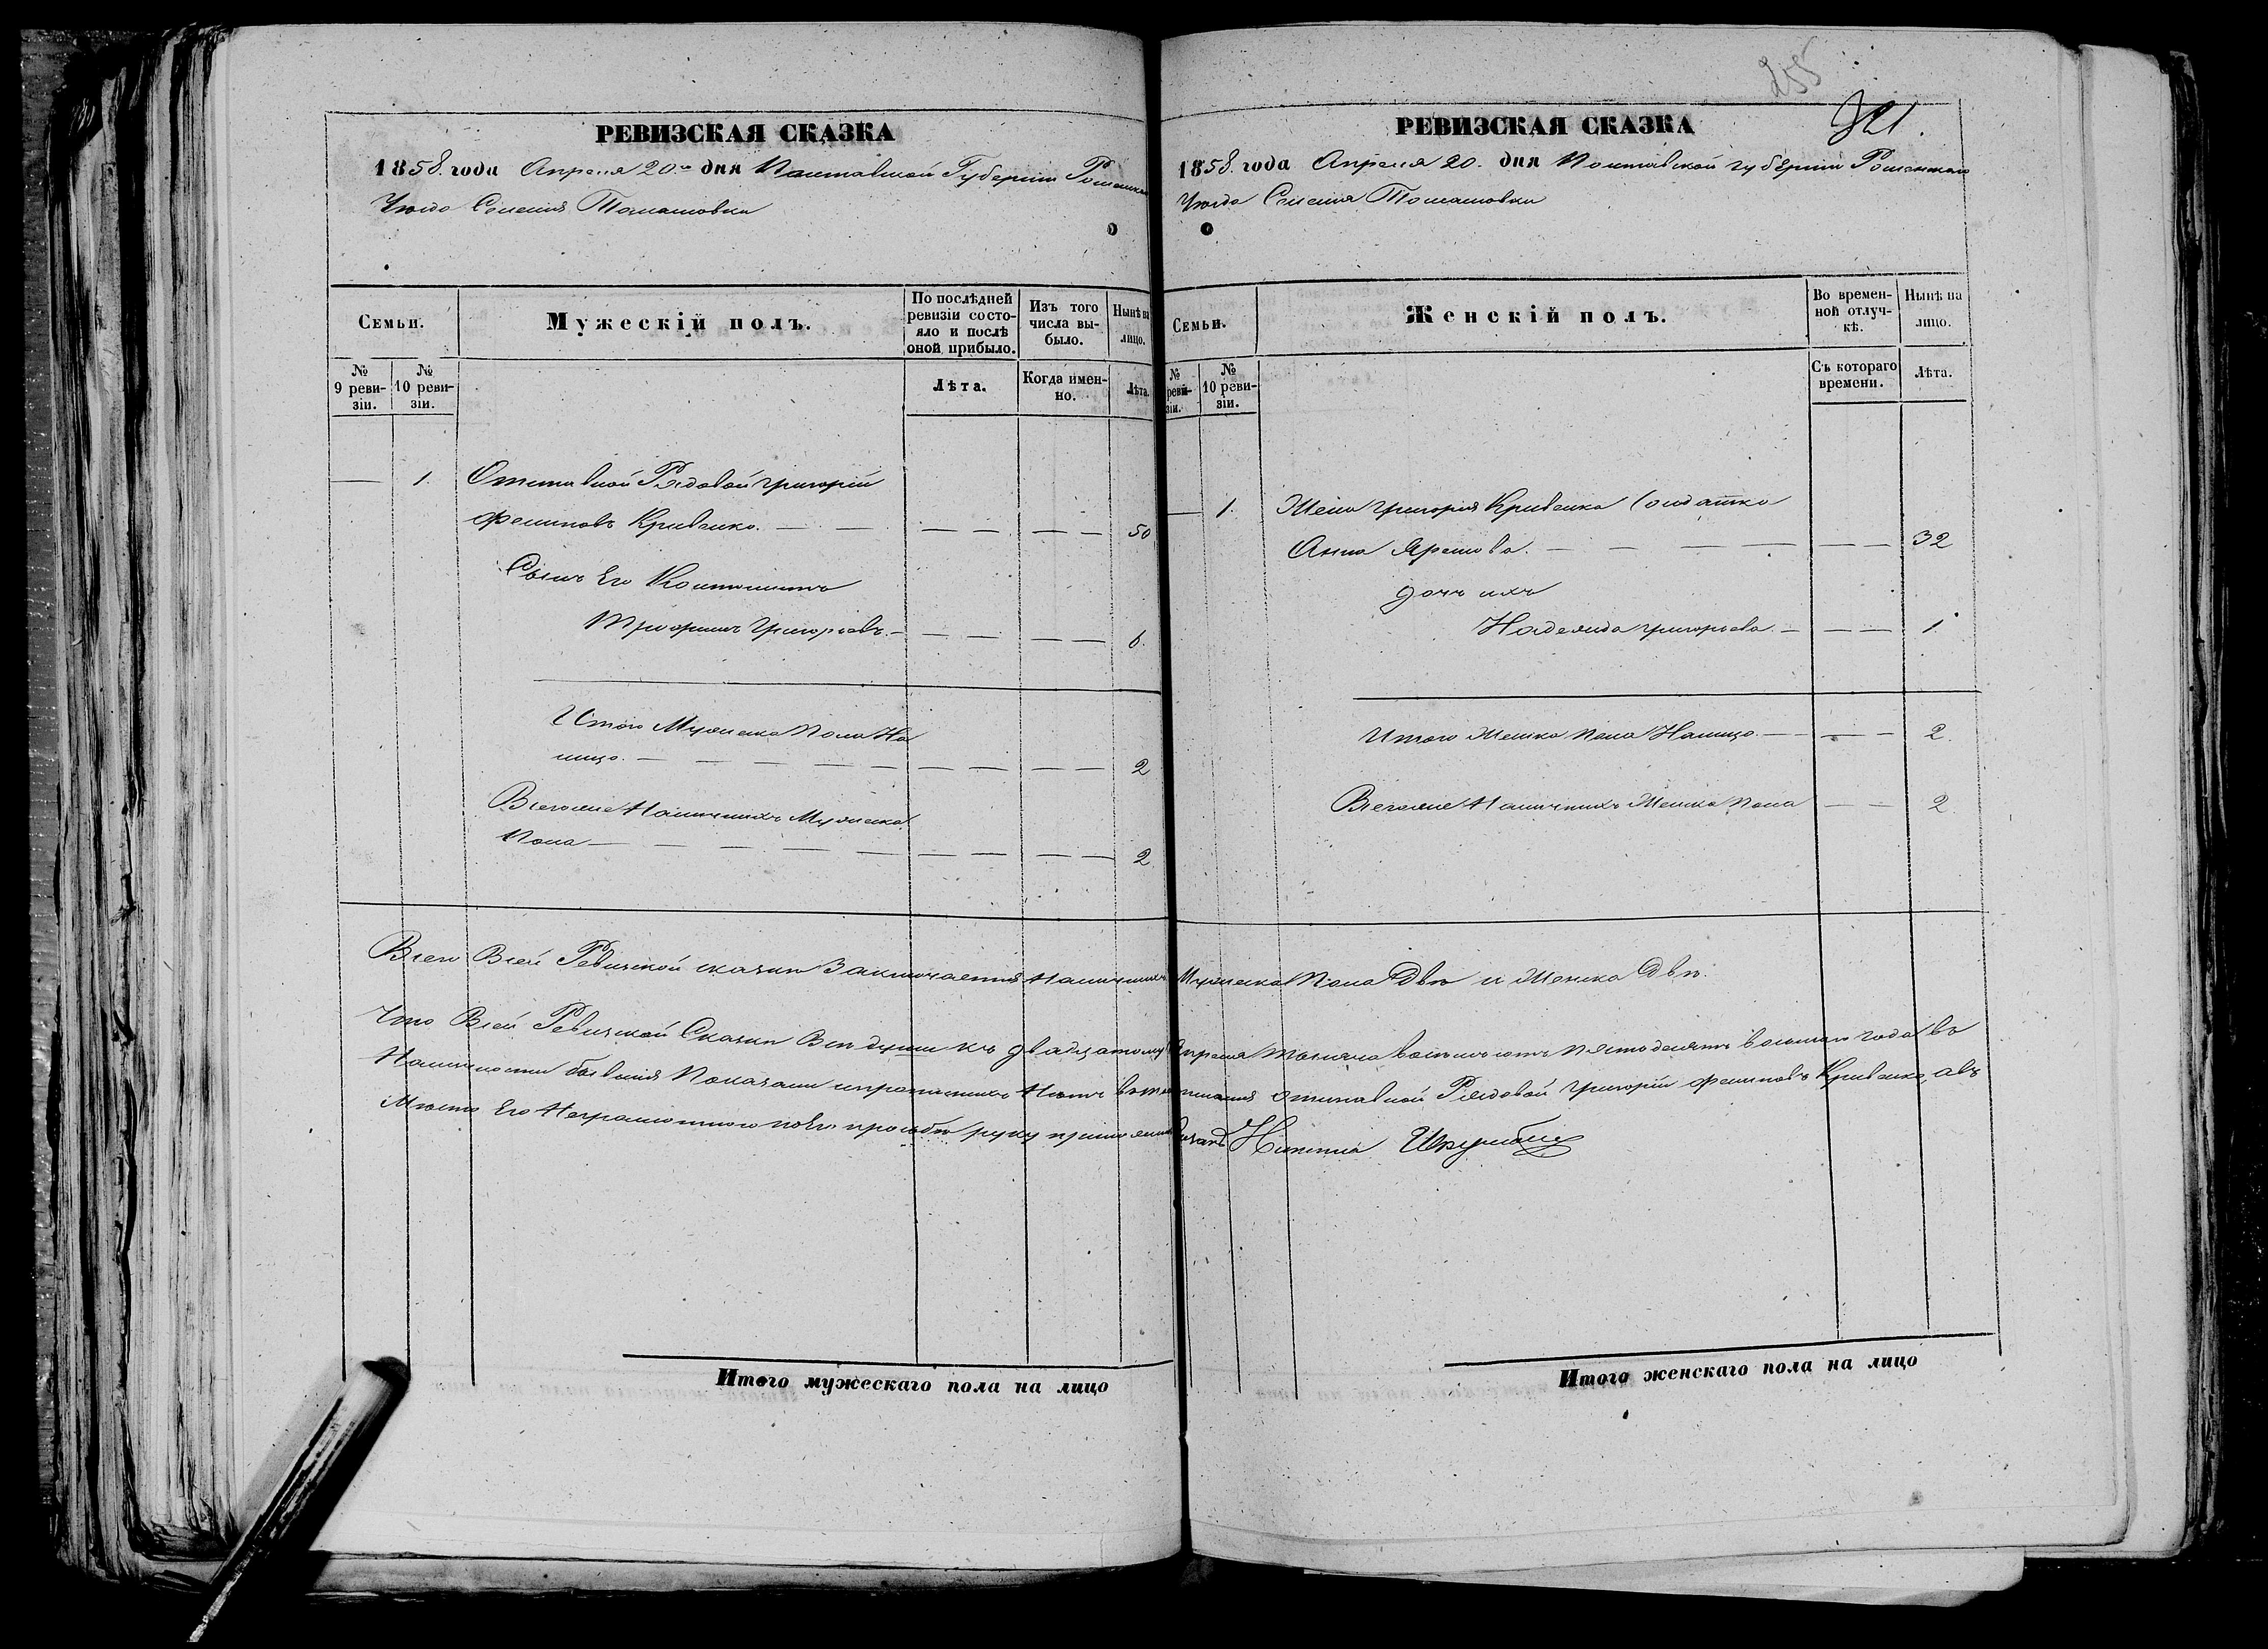 РЕВИЗСКАЯ СКАЗКА
1858. года Апреля 20.го дня Полтавской Губернии Роменска
Уезда Селения Томашовки
Семьи.
Мужескій полъ.
По послѣдней ревизіи состояло и послѣ оной прибыло.
Изъ того числа выбыло.
Нынѣ на лицо.
№ 9 ревизіи.
№ 10 ревизіи.
Лѣта.
Когда именно.
Лѣта.
— 1. Отставной Рядовой Григорій
Филиповъ Кривенко. — — — — — — 50
Сынъ Его Контонистъ
Григорьевъ. — — — — — 6.
Итого Мужеска Пола На
лицо. — — — — — — — 2
Всегоже Наличныхъ Мужеска
Пола — — — — — — — 2.
255
321.
РЕВИЗСКАЯ СКАЗКА
1858. года Апреля 20. дня Полтавской губернии Роменскаго
Уезда Селения Томашовки
Семьи.
Женскій полъ.
Во временной отлучкѣ.
Нынѣ на лицо.
№ ревизіи.
№ 10 ревизіи.
Съ котораго времени.
Лѣта.
— 1. Жена Григория Кривенка Солдатка
Анна — — — — — 32
дочь ихъ
Надежда Григорьева. — — — 1
Итого Женска Пола Налицо. — — — 2.
Всегоже Наличныхъ Женска Пола — — 2.
Всего Всей Ревизской сказки Заключается Наличныхъ Мужеска Пола Две и Женска Две.
Что Всей Ревизской Сказки Все души къ двадцатому Апреля Тысяча восемьсотъ пятьдесятъ восьмаго года въ
Наличности бывшия Показани и Нетъ отставной Рядовой Григорій Филиповъ Кривенко, авъ
Место Его Неграмотного поЕго прозьбе руку приложилъ Никита
Итого мужескаго пола на лицо
Итого женскаго пола на лицо